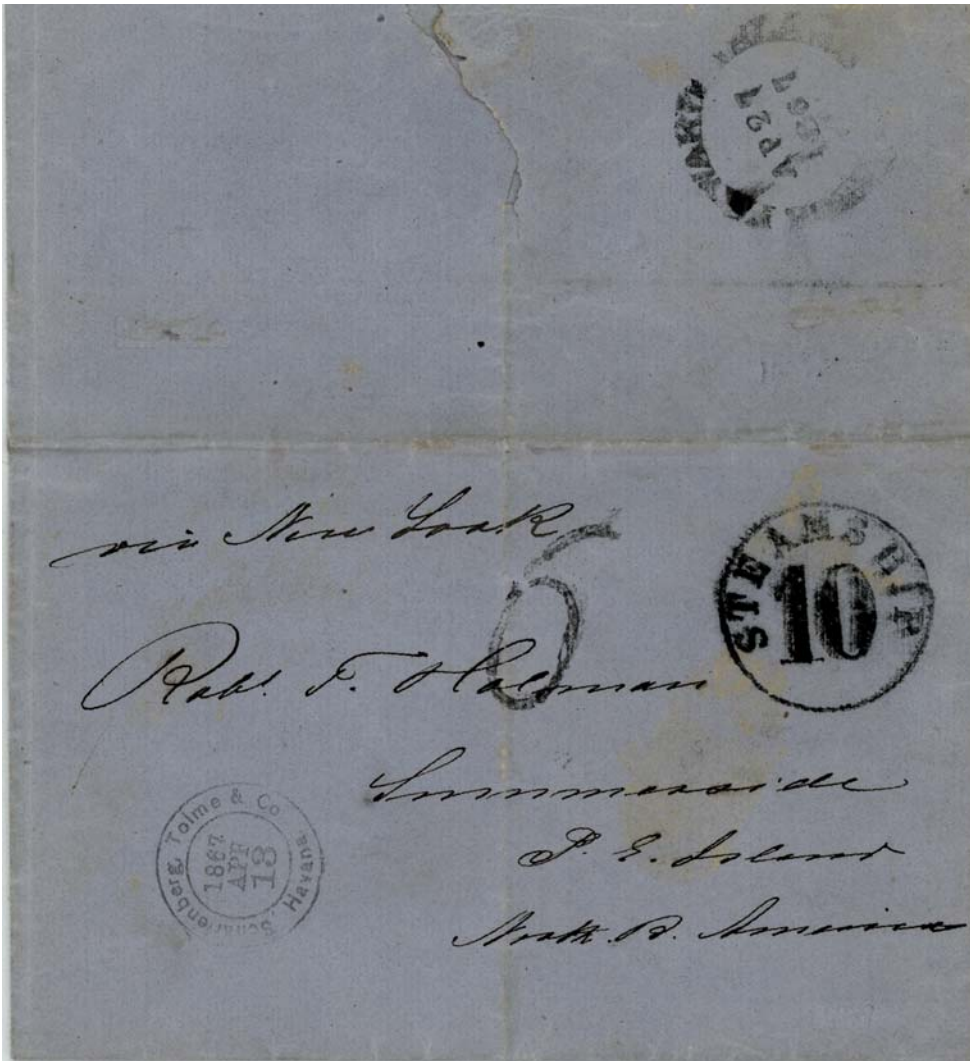 AP 27
1867
via New York
STEAMSHIP
10
6
Robt. F. Holman
Summerside
P. E. Island
North B. America
Scharfenberg, Tolme & Co
Havana
1867
APR
18